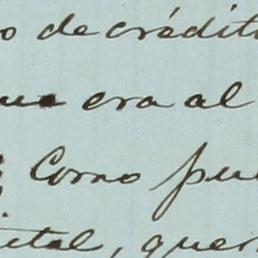 o de crédit
que era al
Como pu
ital, quer